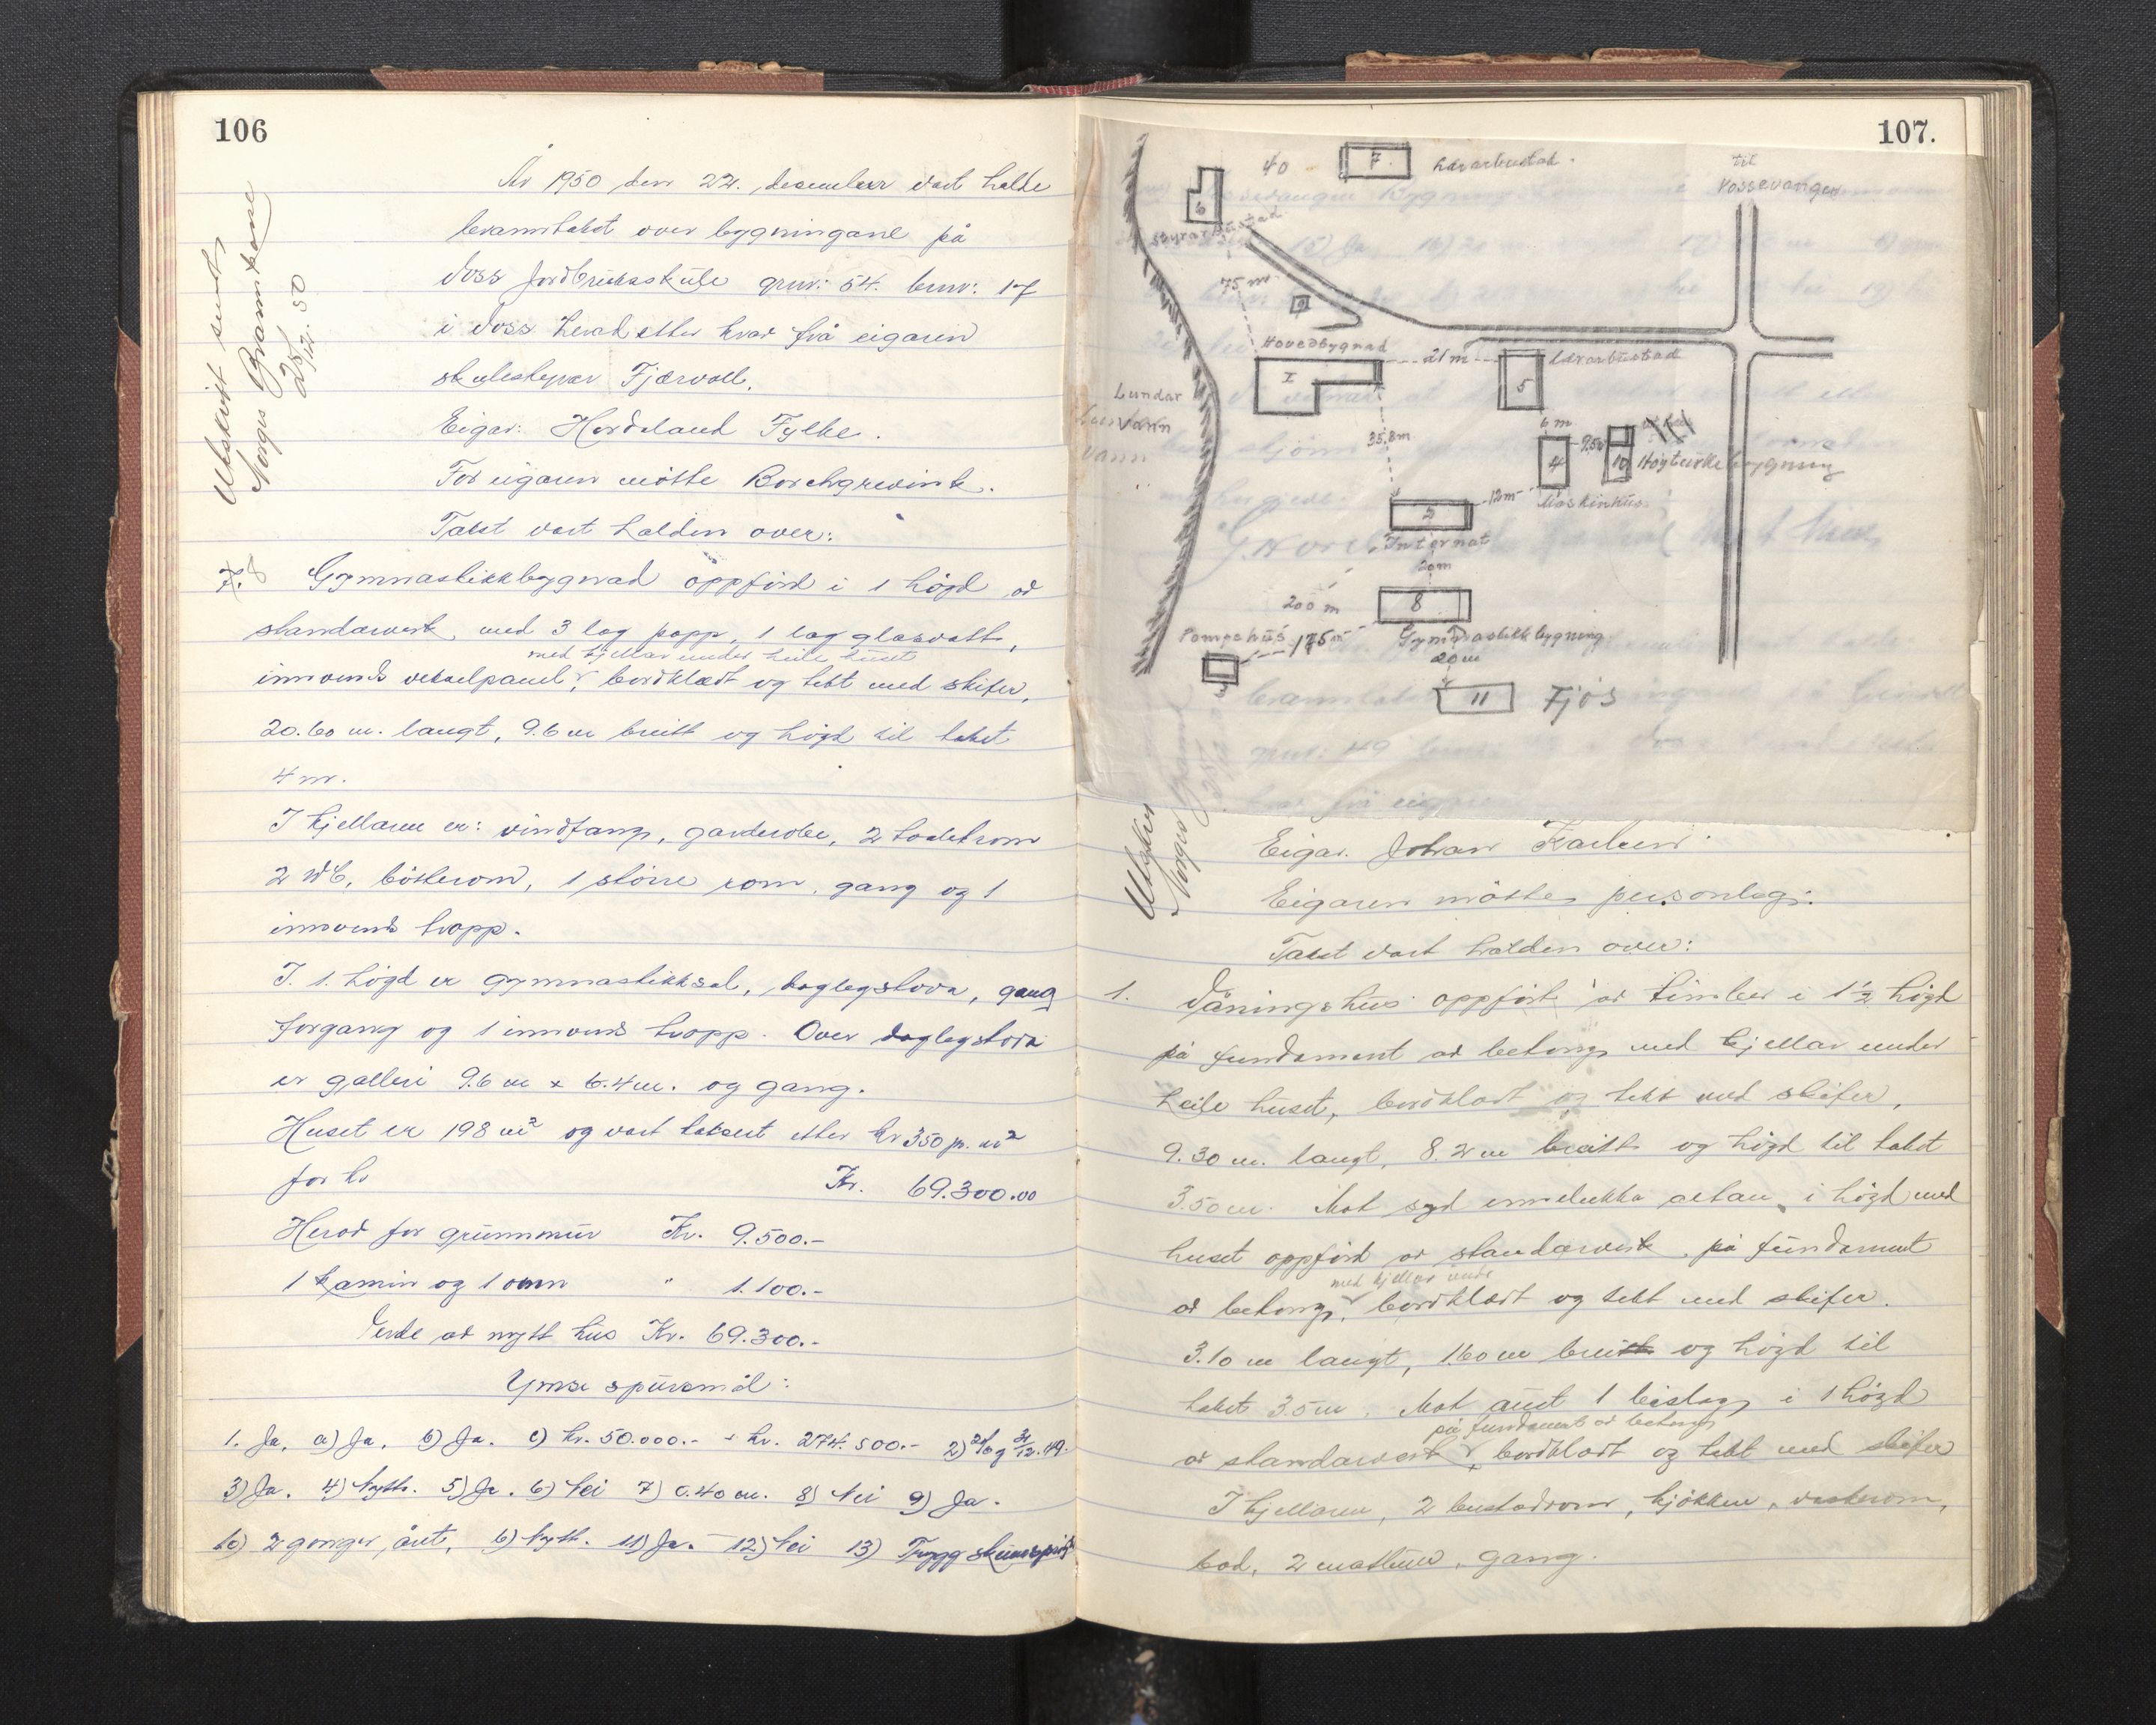 106
År 1950 den 22. desember vart halde
branntakst over bygningane på
Voss Jordbruksskule gnr: 54. bnr: 17
i Voss herad etter krav frå eigaren
skulestyrar Fjærvoll.
Eigar: Hordaland Fylke.
For eigaren møtte Borchgrevink.
Takst vart halden over:
Utskrift sendt
Norges Brannkasse
28/12. 50
7. 8 Gymnastikkbygnad oppförd i 1 högd av
standarverk, med 3 lag papp, 1 lag glasvatt,
med kjellar under heile huset
innvends vekselpanel, bordklædt og tekt med skifer,
20.60 m. langt, 9.6 m breitt og högd til taket
4 m.
I kjellaren er: vindfang, garderobe, 2 toalettrom
2 WC, bötterom, 1 större rom, gang og 1
innvends trapp.
I. 1. högd er gymnastikksal, daglegstova, gang
forgang og 1 innvends trapp. Over daglegstova
er galleri 9.6 m x 6.4 m. og gang.
Huset er 198 m² og vart taksert etter kr 350 pr. m²
for kr Kr. 69.300.00
Herav for grunnmur Kr. 9.500.-
1 kamin og 1 omn " 1.100.-
Verde av nytt hus Kr. 69.300.-
Ymse spursmål:
1. Ja, a) Ja, b) Ja. c) kr. 50.000.- + kr. 274.500.- 2) og 31/12.49.
3) Ja. 4) Nytt. 5) Ja. 6) Nei 7) 0.40 m. 8) Nei 9) Ja.
10) 2 gonger året, b) Nytt. 11) Ja. 12) Nei 13) Trygg
107.
40 7. Lærarbustad.
til
Vossevangen
6
Styrarbustad
75 m
9
Hovedbygnad
I
21 m
Lærarbustad
5
Lundar
vann
vann
35.8m
6 m
4
9.50
10
Høyturkebygning
Maskinhus
12m
2
Internat
20m
8
200 m
Gymnastikkbygning
Pompehus
175 m
3
20m
11 Fjøs
Utskrift
Norges Brannk
Eigar. Johan
Eigaren møtte personleg.
Takst vart halden over:
1. Våningshus oppfört av timber i 1 1/2 högd
på fundament av betong med kjellar under
heile huset, bordklædt og tekt med skifer,
9.30 m. langt, 8.2 m breitt og högd til taket
3.50 m. Mot syd innelukka altan, i högd med
huset oppförd av standarverk, på fundament
med kjellar under
av betong, bordklædt og tekt med skifer.
3.10 m langt, 1.60 m breitt og högd til
taket 3.5 m. Mot aust 1 bislag i 1 högd
på fundament av betong
av standarverk, bordklædt og tekt med skifer
I kjellaren, 2 bustadrom, kjökken, vaskerom,
bod, 2 matbuer, gang.